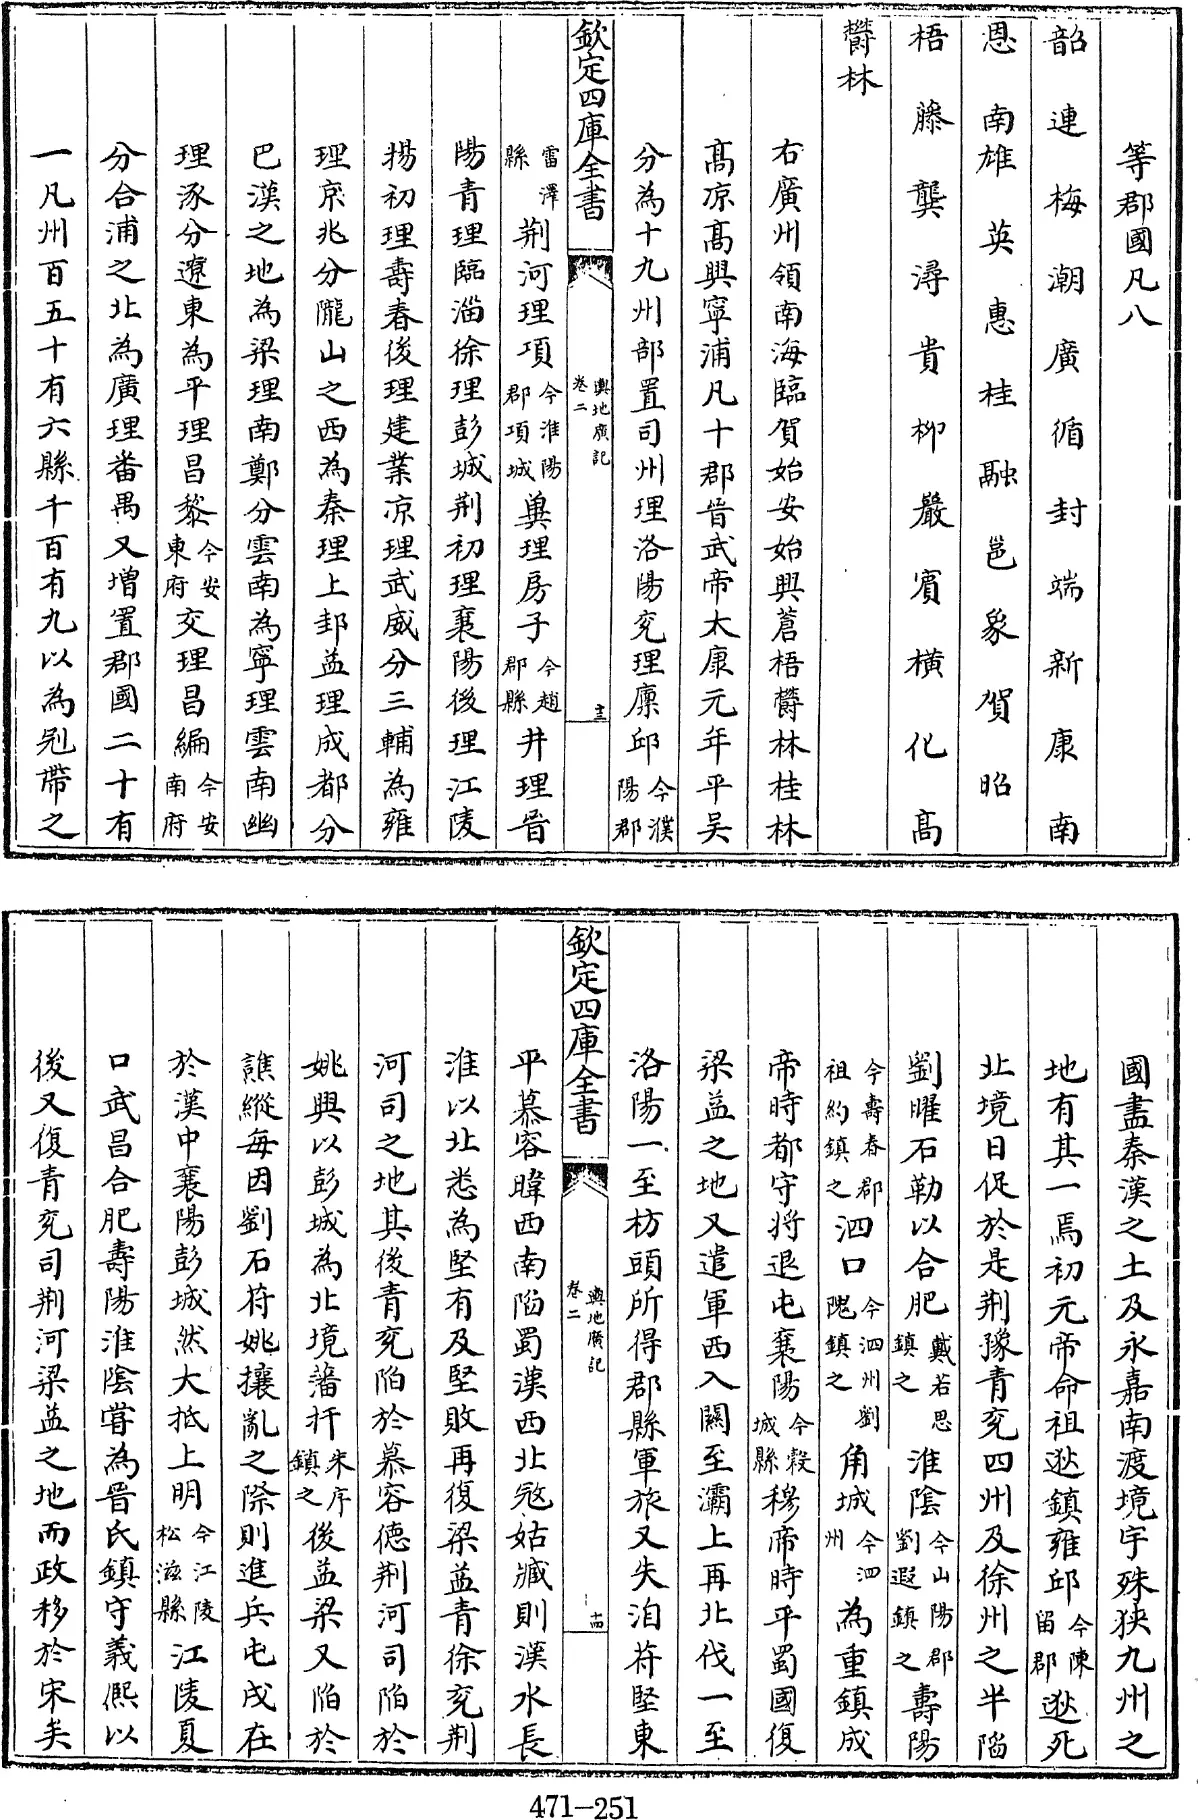 等郡國凡八
韶連梅潮廣循封端新康南
恩南雄英惠桂融邕象賀昭
梧藤龔潯貴柳嚴賔橫化髙
欝林
右廣州領南海臨賀始安始興蒼梧欝林桂林
髙凉髙興寧浦凡十郡晉武帝太康元年平吴
分為十九州部置司州理洛陽兖理廩邱今濮陽郡
欽定四庫全書 輿地廣記 卷二 十三
雷澤縣荆河理項今淮陽郡項城兾理房子今趙郡縣井理晉
陽青理臨淄徐理彭城荆初理襄陽後理江陵
揚初理壽春後理建業凉理武威分三輔為雍
理京兆分隴山之西為秦理上邽益理成都分
巴漢之地為梁理南鄭分雲南為寧理雲南幽
理涿分遼東為平理昌黎今安東府交理昌編今安南府
分合浦之北為廣理番禺又增置郡國二十有
一凡州百五十有六縣千百有九以為冠帶之
國盡秦漢之土及永嘉南渡境宇殊狹九州之
地有其一焉初元帝命祖逖鎮雍邱今陳留郡逖死
北境日促於是荆豫青兖四州及徐州之半陷
劉曜石勒以合肥戴若思鎮之淮陰今山陽郡劉遐鎮之壽陽
今壽春郡祖約鎮之泗口今泗州劉隗鎮之角城今泗州為重鎮成
帝時都守將退屯襄陽今穀城縣穆帝時平蜀國復
梁益之地又遣軍西入關至灞上再北伐一至
洛陽一至枋頭所得郡縣軍旅又失洎苻堅東
欽定四庫全書 輿地廣記 卷二 十四
平慕容暐西南陷蜀漢西北尅姑臧則漢水長
淮以北悉為堅有及堅敗再復梁益青徐兖荆
河司之地其後青兖陷於慕容德荆河司陷於
姚興以彭城為北境藩扞朱序鎮之後益梁又陷於
譙縱每因劉石苻姚攘亂之際則進兵屯戍在
於漢中襄陽彭城然大抵上明今江陵松滋縣江陵夏
口武昌合肥壽陽淮陰嘗為晉氏鎮守義熙以
後又復青兖司荆河梁益之地而政移於宋矣
471-251